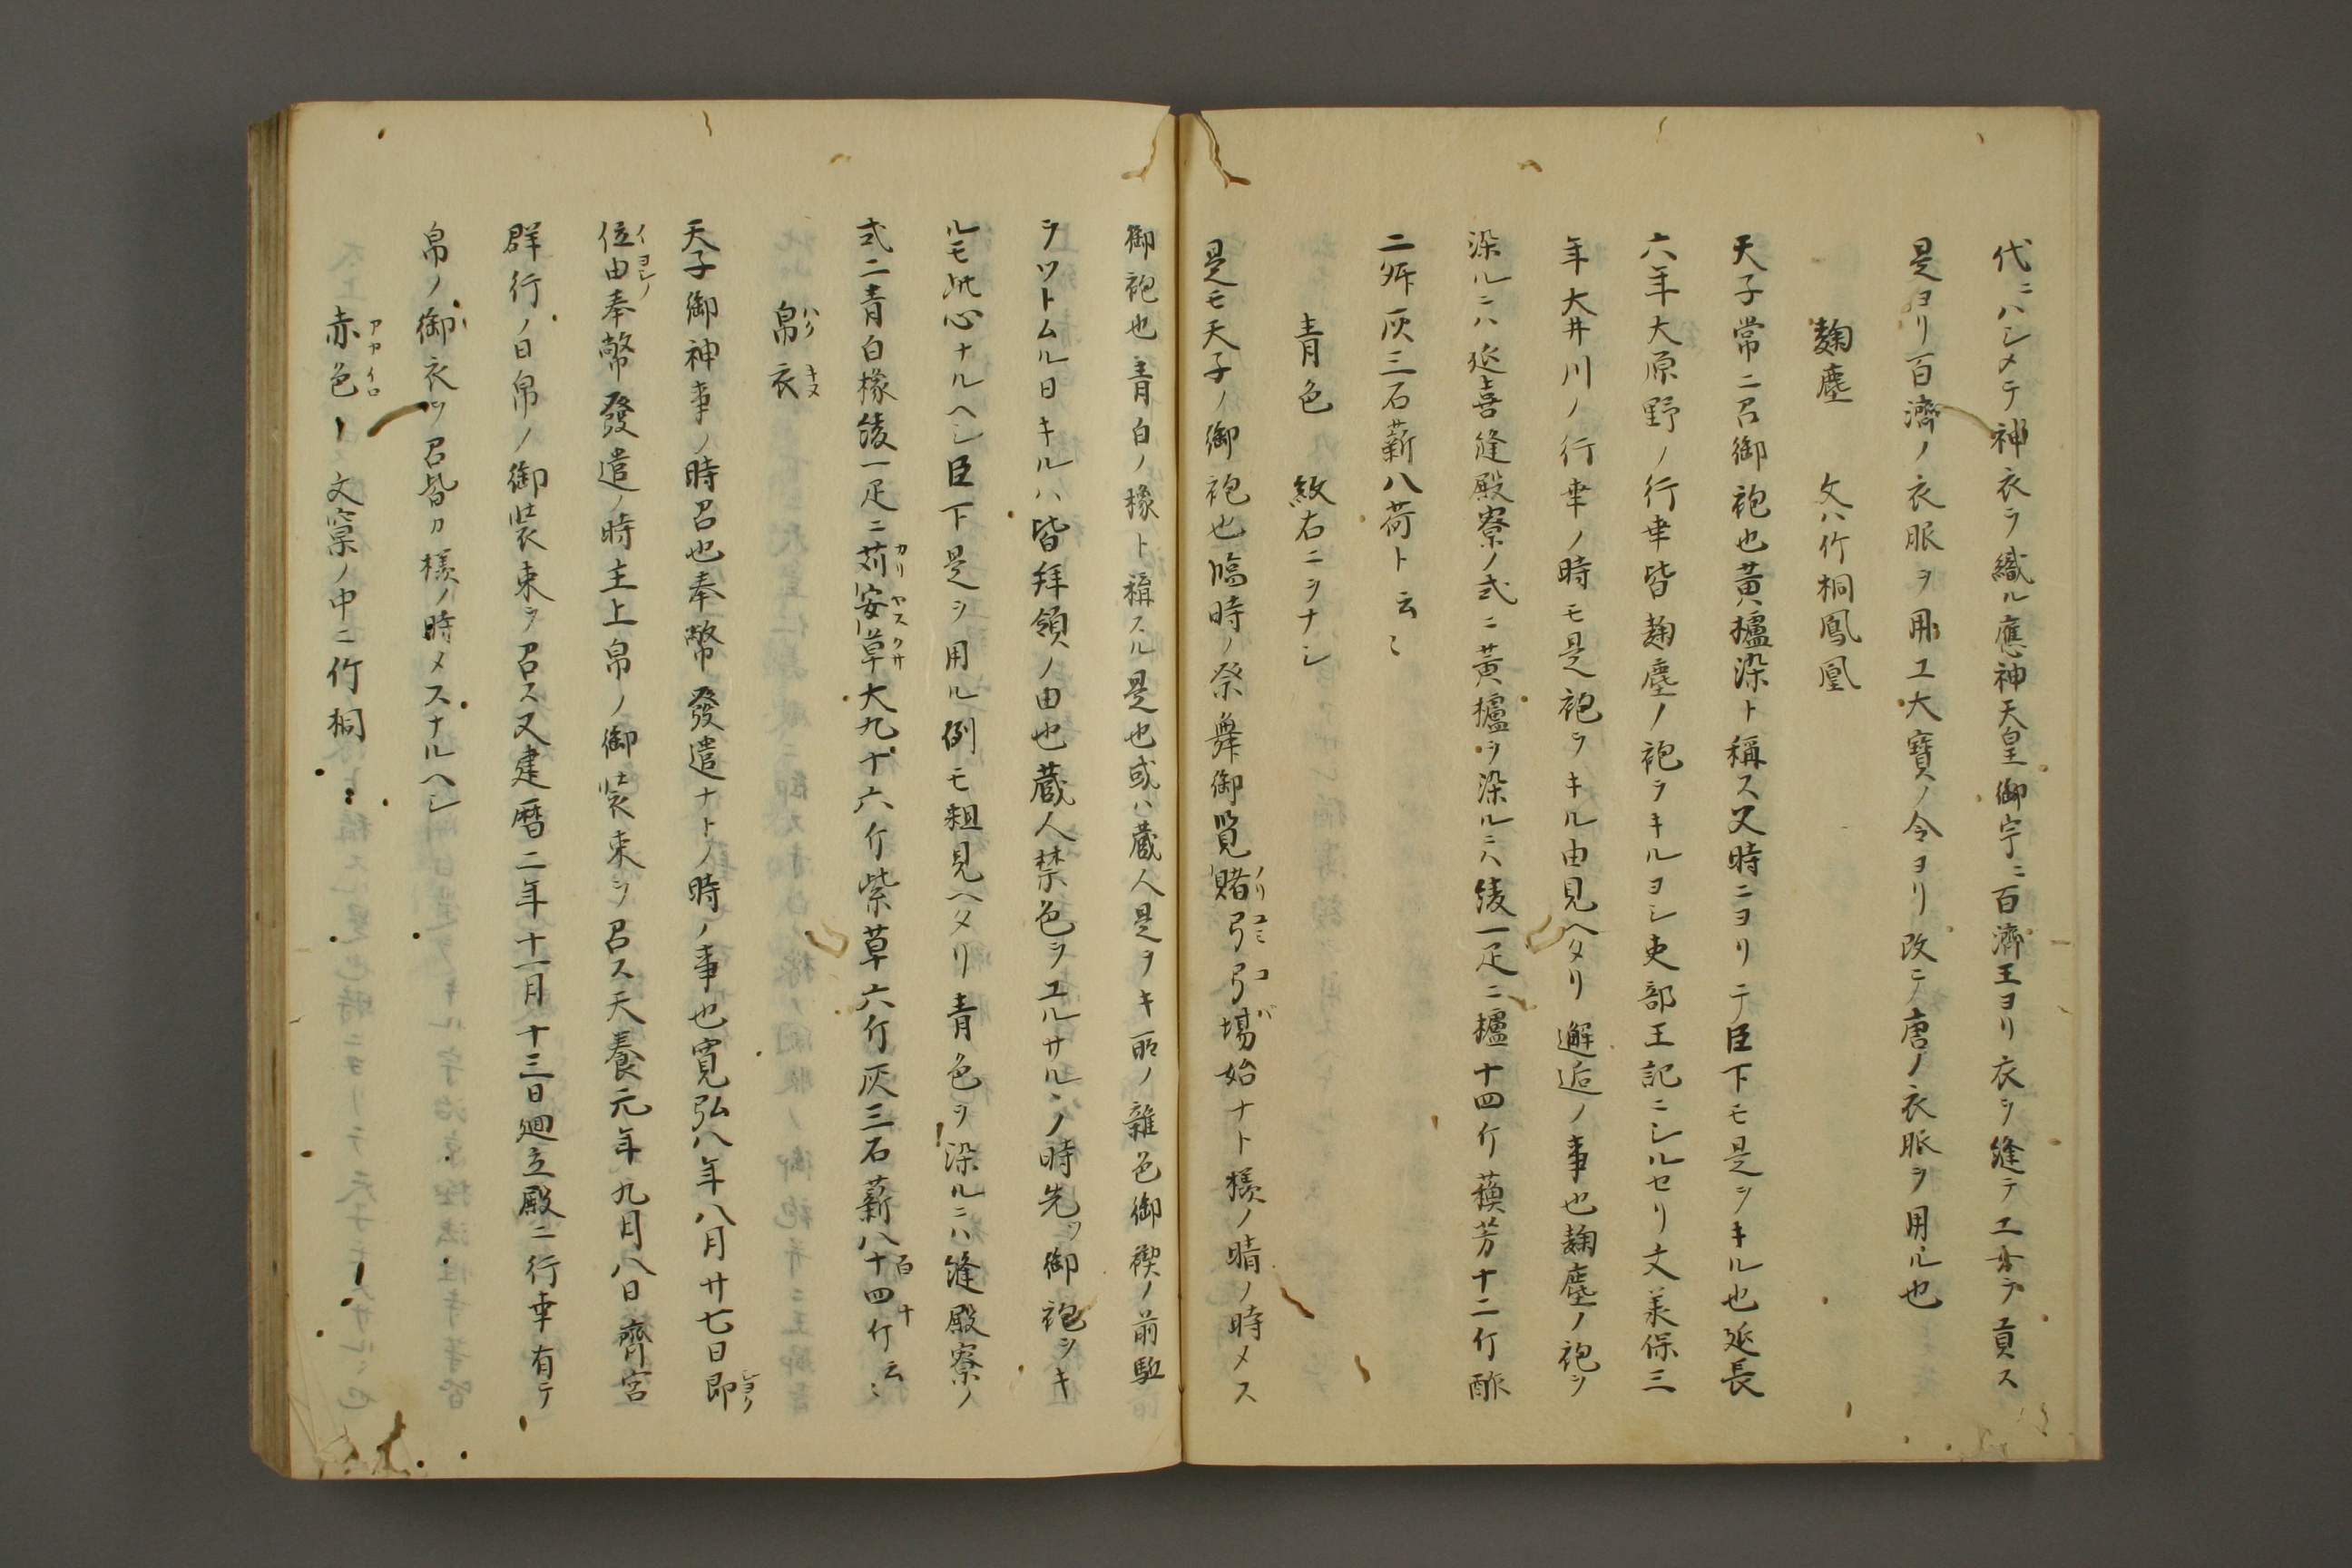 代ニハシメテ神衣ヲ織ル應神天皇御宇ニ百濟王ヨリ衣ヲ縫テ工ヲ貢ス
是ヨリ百濟ノ衣服ヲ用エ大寶ノ令ヨリ改テ唐ノ衣服ヲ用ル也
麹塵 文ハ竹桐鳳凰
天子常ニ召御袍也黄櫨染ト稱ス又時ニヨリテ臣下モ是ヲキル也延長
六年大原野ノ行幸皆麹塵ノ袍ヲキルヨシ吏部王記ニシルセリ又羕保三
年大井川ノ行幸ノ時モ是袍ヲキル由見ヘタリ邂逅ノ事也麹塵ノ袍ヲ
染ルニハ延喜縫殿寮ノ式ニ黄櫨ヲ染ルニハ綾一疋ニ櫨十四斤蘓芳十二斤酢
二舛灰三石薪八荷ト云〻
青色 紋右ニヲナシ
是モ天子ノ御袍也臨時ノ祭舞御覧賭ノリ弓ユミ弓コ場バ始ナト様ノ晴ノ時メス
御袍也青白ノ橡ト稱スル是也或ハ蔵人是ヲキ所ノ雜色御禊ノ前駈
ヲツトムル日キルハ皆拜領ノ由也蔵人禁色ヲユルサルヽノ時先ツ御袍ヲキ
ルモ此心ナルヘシ臣下是ヲ用ル例モ粗見ヘタリ青色ヲ染ルニハ縫殿寮ノ
式ニ青白橡綾一疋ニ苅カリ安ヤス草クサ大九十六斤紫草六斤灰三石薪八百十四十斤云〻
帛ハク衣キヌ
天子御神事ノ時召也奉幣發遣ナトノ時ノ事也寛弘八年八月廿七日即
位イ由ヨシノ奉幣發遣ノ時主上帛ノ御装束ヲ召ス天養元年九月八日齊宮
群行ノ日帛ノ御装束ヲ召ス又建暦二年十一月十三日廻立殿ニ行幸有テ
帛ノ御衣ヲ召皆カ様ノ時メスナルヘシ
赤アカ色イロ 文窠ノ中ニ竹桐